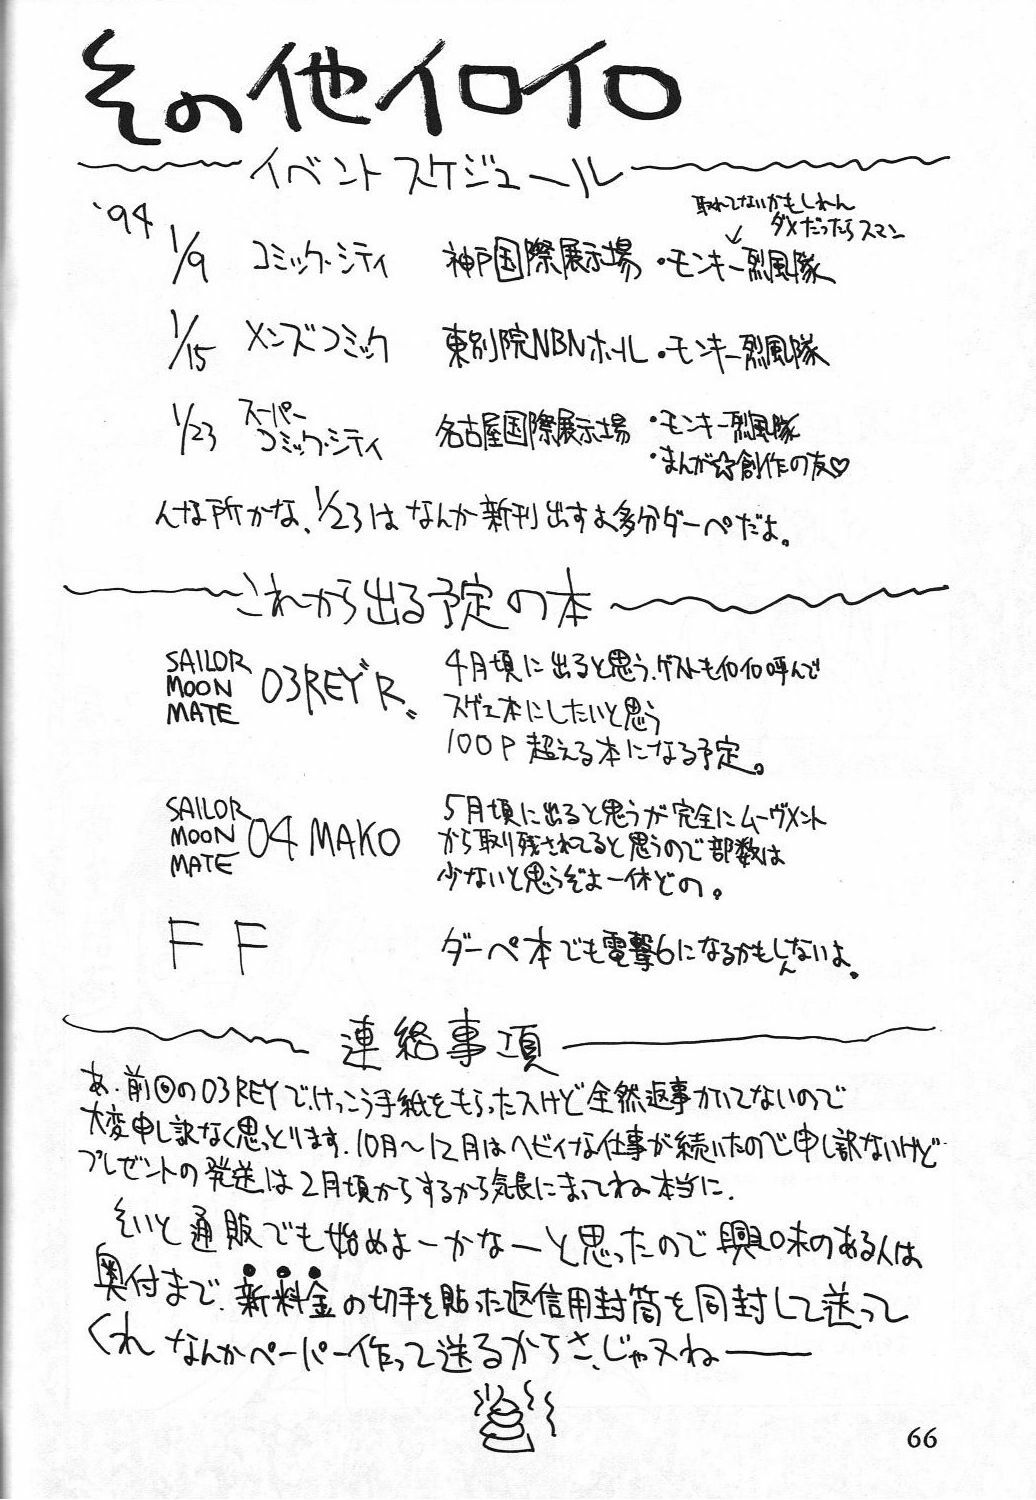 その他イロイロ
イベントスケジュール
'94
取れてないかもしれん
ダメだったらスマン
1/9 コミック・シティ 神戸国際展示場 ・モンキー烈風隊
1/15 メンズコミック 東別院NBNホール ・モンキー烈風隊
1/23 スーパーコミック・シティ 名古屋国際展示場 ・モンキー烈風隊
・まんが☆創作の友♡
んな所かな、1/23はなんか新刊出すよ多分ダーペだよ。
これから出る予定の本
SAILOR MOON MATE 03REY"R〟 4月頃に出ると思う、ゲストもイロイロ呼んで
スゲェ本にしたいと思う
100P超える本になる予定。
SAILOR MOON MATE 04 MAKO 5月頃に出ると思うが完全にムーヴメント
から取り残されてると思うので部数は
少ないと思うぞよ一休どの。
FF ダーペ本でも電撃6になるかもしんないよ。
連絡事項
あ、前回の03REYで、けっこう手紙をもらったスけど全然返事かいてないので
大変申し訳なく思っとります、10月〜12月はヘビイな仕事が続いたので申し訳ないけど
プレゼントの発送は2月頃からするから気長にまっててね本当に、
そいと通販でも始めよーかなーと思ったので興味のある人は
奥付まで、新料金の切手を貼った返信用封筒を同封して送って
くれ なんかペーパー作って送るからさ、じゃヌね――
66